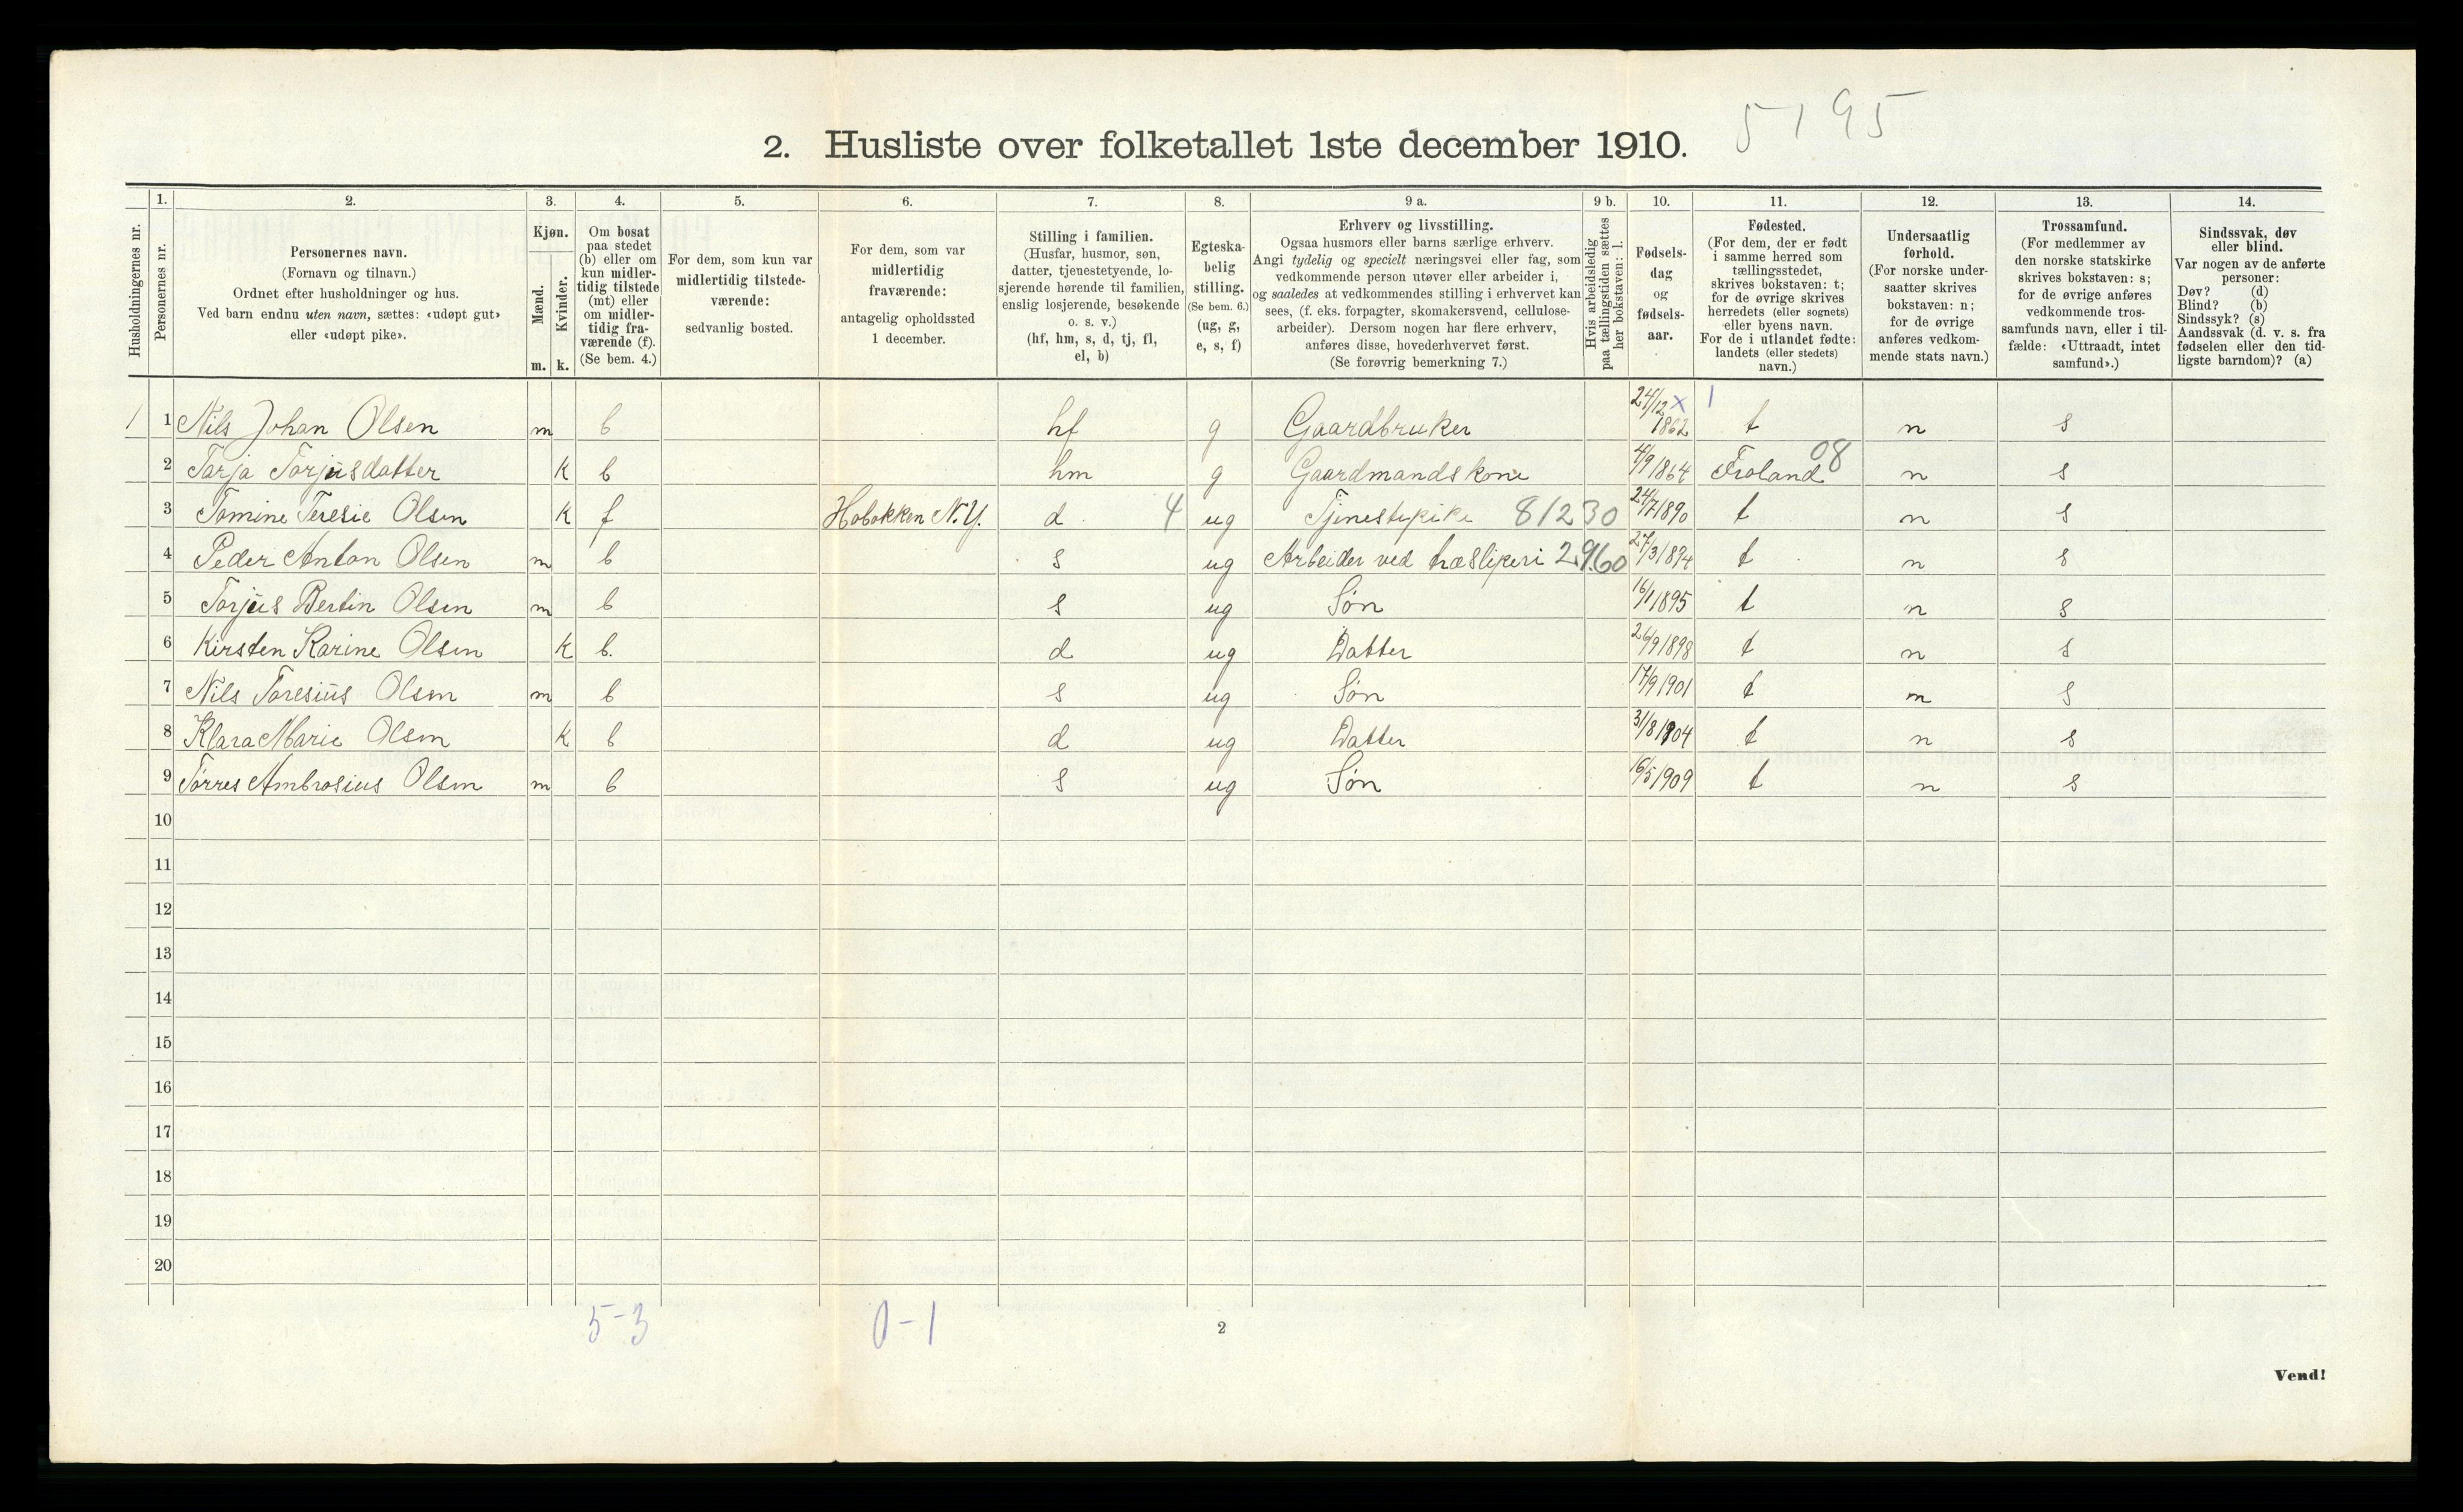 5195
2. Husliste over folketallet 1ste december 1910.
Husholdningernes nr.
1.
Personernes nr.
2.
Personernes navn.
(Fornavn og tilnavn.)
Ordnet efter husholdninger og hus.
Ved barn endnu uten navn, sættes: «udøpt gut»
eller «udøpt pike».
3.
Kjøn.
Mænd.
Kvinder.
m. k.
4.
Om bosat
paa stedet
(b) eller om
kun midler-
tidig tilstede
(mt) eller
om midler-
tidig fra-
værende (f).
(Se bem. 4.)
5.
For dem, som kun var
midlertidig tilstede-
værende:
sedvanlig bosted.
6.
For dem, som var
midlertidig
fraværende:
antagelig opholdssted
1 december.
7.
Stilling i familien.
(Husfar, husmor, søn,
datter, tjenestetyende, lo-
sjerende hørende til familien,
enslig losjerende, besøkende
o. s. v.)
(hf, hm, s, d, tj, fl,
el, b)
8.
Egteska-
belig
stilling.
(Se bem. 6.)
(ug, g,
e, s, f)
9 a.
Erhverv og livsstilling.
Ogsaa husmors eller barns særlige erhverv.
Angi tydelig og specielt næringsvei eller fag, som
vedkommende person utøver eller arbeider i,
og saaledes at vedkommendes stilling i erhvervet kan
sees, (f. eks. forpagter, skomakersvend, cellulose-
arbeider). Dersom nogen har flere erhverv,
anføres disse, hovederhvervet først.
(Se forøvrig bemerkning 7.)
9 b.
Hvis arbeidsledig
paa tællingstiden sættes
her bokstaven: l.
10.
Fødsels-
dag
og
fødsels-
aar.
11.
Fødested.
(For dem, der er født
i samme herred som
tællingsstedet,
skrives bokstaven: t;
for de øvrige skrives
herredets (eller sognets)
eller byens navn.
For de i utlandet fødte:
landets (eller stedets)
navn.)
12.
Undersaatlig
forhold.
(For norske under-
saatter skrives
bokstaven: n;
for de øvrige
anføres vedkom-
mende stats navn.)
13.
Trossamfund.
(For medlemmer av
den norske statskirke
skrives bokstaven: s;
for de øvrige anføres
vedkommende tros-
samfunds navn, eller i til-
fælde: «Uttraadt, intet
samfund».)
14.
Sindssvak, døv
eller blind.
Var nogen av de anførte
personer:
Døv? (d)
Blind? (b)
Sindssyk? (s)
Aandssvak (d. v. s. fra
fødselen eller den tid-
ligste barndom)? (a)
1 1 Nils Johan Olsen m b hf g Gaardbruker 24/12 1862 x 1 t n s
2 Tarja Torjusdatter k b hm g Gaardmandskone 4/9 1864 Froland 08 n s
3 Tomine Teresie Olsen k f Hobokken N.Y. d 4 ug Tjenestepike 81230 24/7 1890 t n s
4 Peder Anton Olsen m b s ug Arbeider ved træsliperi 2960 27/3 1894 t n s
5 Torjus Bertin Olsen m b s ug Søn 16/1 1895 t n s
6 Kirsten Karine Olsen k b. d ug Datter 26/9 1898 t n s
7 Nils Toresius Olsen m b s ug Søn 17/9 1901 t n s
8 Klara Marie Olsen k b d ug Datter 31/8 1904 t n s
9 Tørres Ambrosius Olsen m b s ug Søn 16/5 1909 t n s
10
11
12
13
14
15
16
17
18
19
20
5-3 0-1
2
Vend!